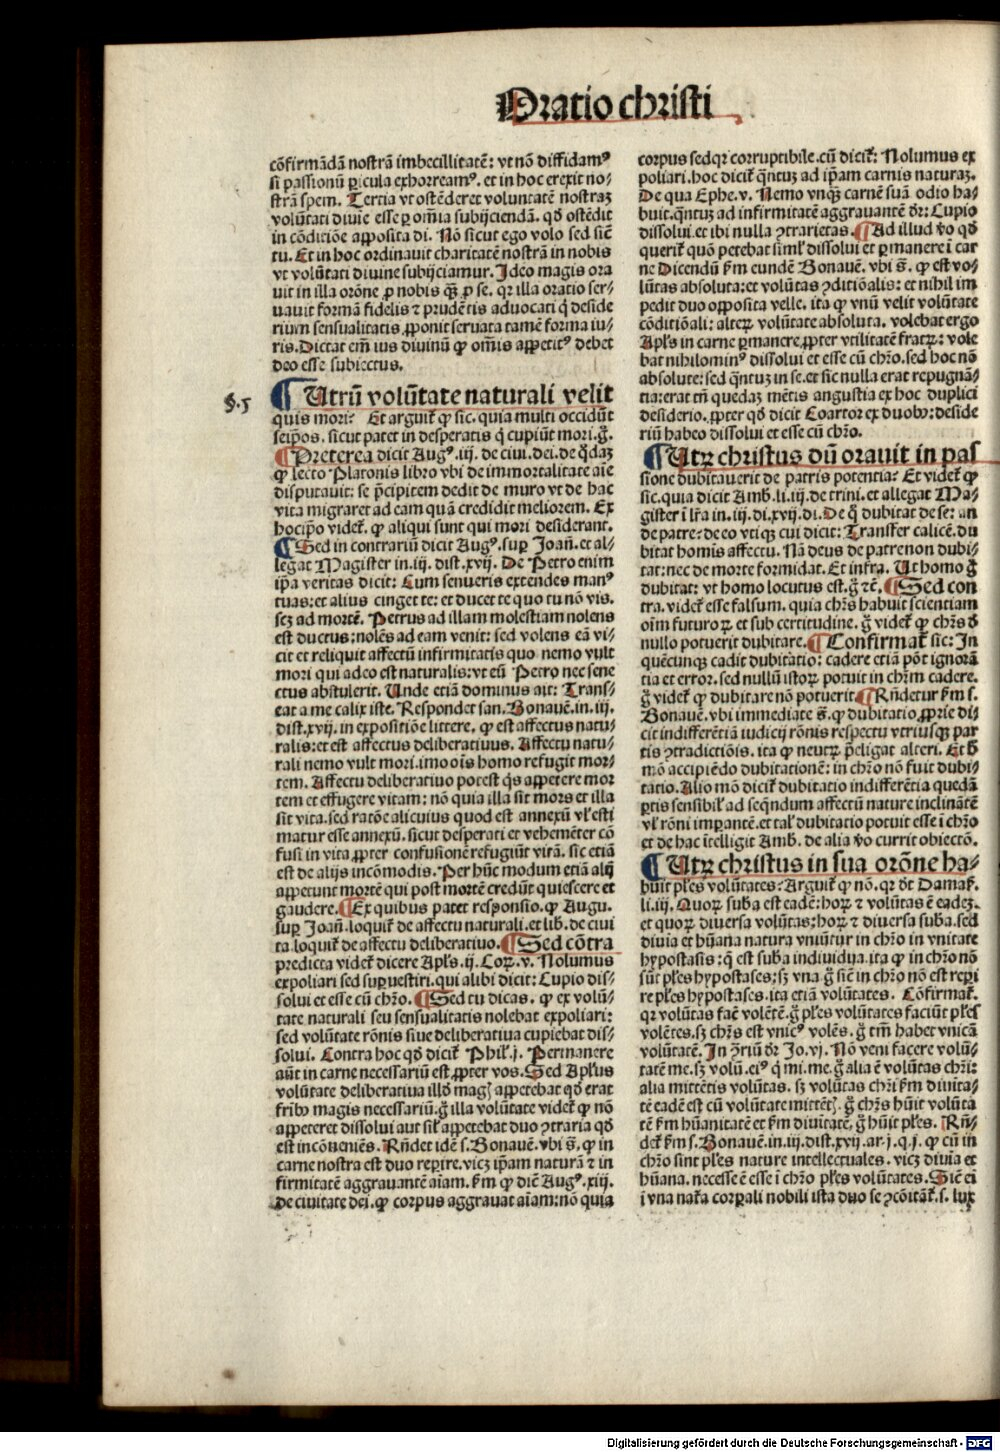 Oratio christi
cōfirmādā nostrā imbecillitatē: vt nō diffidamꝰ
si passionū ꝑicula exhorreamꝰ. et in hoc erexit no⸗
strā spem. Tertia vt ostēderet voluntatē nostraꝫ
volūtati diuīe esse ꝑ om̄ia subijciendā. qd̄ ostēdit
in cōditiōe apposita di. Nō sicut ego volo sed siē
tu. Et in hoc ordinauit charitatē nostrā in nobis
vt volūtati diuine subijciamur. Ideo magis ora
uit in illa orōne ꝓ nobis qꝫ̄ ꝓ se. qꝛ illa oratio ser⸗
uauit formā fidelis ⁊ prudētis aduocati q̇ deside
rium sensualitatis ꝓponit seruata tamē forma iu⸗
ris. Dictat em̄ ius diuinū ꝙ om̄is appetitꝰ debet
deo esse subiectus.
§.5
¶ Utrū volūtate naturali velit
quis mori? Et arguit̄ ꝙ sic. quia multi occidūt
seip̄os. sicut patet in desperatis q̇ cupiūt mori. g̊.
¶ Preterea dicit Augꝰ. iij. de ciui. dei. de q̇daꝫ
ꝙ lecto Platonis libro vbi de immortalitate aīe
disputauit: se p̄cipitem dedit de muro vt de hac
vita migraret ad eam quā credidit meliorem. Ex
hocip̄o videt̄. ꝙ aliqui sunt qui mori desiderant.
¶ Sed in contrariū dicit Augꝰ. suꝑ Joan̄. et al⸗
legat Magister in. iij. dist. xvij. De Petro enim
ip̄a veritas dicit: Cum senueris extendes manꝰ
tuas: et alius cinget te: et ducet te quo tu nō vis.
scꝫ ad mortē. Petrus ad illam molestiam nolens
est ductus: nolēs ad eam venit: sed volens eā vi⸗
cit et reliquit affectū infirmitatis quo nemo vult
mori qui adeo est naturalis: vt eū Petro nec sene
ctus abstulerit. Unde etiā dominus ait: Trans⸗
eat a me calix iste. Respondet san. Bonauē. in. iij.
dist. xvij. in expositiōe littere. ꝙ est affectus natu⸗
ralis: et est affectus deliberatiuus. Affectu natu⸗
rali nemo vult mori. imo oīs homo refugit mor⸗
tem. Affectu deliberatiuo potest q̇s appetere mor
tem et effugere vitam: nō quia illa sit mors et illa
sit vita. sed ratōe alicuius quod est annexū vl̓ esti
matur esse annexū. sicut desperati et vehemēter cō
fusi in vita ꝓpter confusionē refugiūt vitā. sic etiā
est de alijs incōmodis. Per hūc modum etiā alij
appetunt mortē qui post mortē credūt quiescere et
gaudere. ¶ Ex quibus patet responsio. ꝙ Augu.
suꝑ Joan̄. loquit̄ de affectu naturali. et lib. de ciui
ta. loquit̄ de affectu deliberatiuo. ¶ Sed cōtra
predicta videt̄ dicere Apl̓s. ij. Coꝝ. v. Nolumus
expoliari sed suꝑuestiri. qui alibi dicit: Cupio dis⸗
solui et esse cū chr̄o. ¶ Sed tu dicas. ꝙ ex volū⸗
tate naturali seu sensualitatis nolebat expoliari:
sed volūtate rōnis siue deliberatiua cupiebat dis⸗
solui. Contra hoc qd̄ dicit̄ Phil̓. j. Permanere
aūt in carne necessariū est ꝓpter vos. Sed Apl̓us
volūtate deliberatiua illd̓ mag᷒ appetebat qd̄ erat
frībꝰ magis necessariū. g̊ illa volūtate videt̄ ꝙ nō
appeteret dissolui aut sil̓ appetebat duo ꝯtraria qd̄
est incōueniēs. Rn̄det idē s. Bonauē. vbi s̄. ꝙ in
carne nostra est duo reꝑire. vicꝫ ip̄am naturā ⁊ in
firmitatē aggrauantē aīam. ẜm ꝙ diē Augꝰ. xiij.
de ciuitate dei. ꝙ corpus aggrauat aīam: nō quia
corpus sed qꝛ corruptibile. cū dicit̄: Nolumus ex
poliari. hoc dicit̄ q̄ntuꝫ ad ip̄am carnis naturaꝫ.
De qua Ephe. v. Nemo vnqꝫ̄ carnē suā odio ha⸗
buit. q̄ntuꝫ ad infirmitatē aggrauantē dr̄: Cupio
dissolui. et ibi nulla ꝯtrarietas. ¶ Ad illud v̓o qd̄
querit̄ quō petebat siml̓ dissolui et ꝑmanere ī car
ne Dicendū ẜm eundē Bonauē. vbi s̄. ꝙ est vo⸗
lūtas absoluta: et volūtas ꝯditiōalis: et nihil im
pedit duo opposita velle. ita ꝙ vnū velit volūtate
cōditiōali: alteꝝ volūtate absoluta. volebat ergo
Apl̓s in carne ꝑmanere ꝓpter vtilitatē fratꝝ: vole
bat nihilominꝰ dissolui et esse cū chr̄o. sed hoc nō
absolute: sed q̄ntuꝫ in se. et sic nulla erat repugnā⸗
tia: erat tn̄ quedaꝫ mētis angustia ex hoc duplici
desiderio. ꝓpter qd̄ dicit Coartor ex duobꝰ: deside
riū habeo dissolui et esse cū chr̄o.
¶ Utꝝ christus dū orauit in pas
sione dubitauerit de patris potentia? Et videt̄ ꝙ
sic. quia dicit Amb. li. iij. de trini. et allegat Ma⸗
gister ī lr̄a in. iij. di. xvij. di. De q̊ dubitat de se: an
de patre: de eo vtiqꝫ cui dicit: Transfer calicē. du
bitat homīs affectu. Nā deus de patre non dubi⸗
tat: nec de morte formidat. Et infra. Ut homo g̊
dubitat: vt homo locutus est. g̊ ⁊c̄. ¶ Sed con
tra. videt̄ esse falsum. quia chr̄s habuit scientiam
oīm futuroꝝ et sub certitudine. g̊ videt̄ ꝙ chr̄s d̓
nullo potuerit dubitare. ¶ Confirmat̄ sic: In
quēcunqꝫ cadit dubitatio: cadere etiā pōt ignorā
tia et error. sed nullū istoꝝ potuit in chr̄m cadere.
g̊ videt̄ ꝙ dubitare nō potuerit. ¶ Rn̄detur ẜm s.
Bonauē. vbi immediate s̄. ꝙ dubitatio ꝓprie di⸗
cit indifferētiā iudicij rōnis respectu vtriusqꝫ par
tis ꝯtradictiōis. ita ꝙ neutꝝ p̄eligat alteri. Et h̓
mō accipiēdo dubitationē: in chr̄o nō fuit dubi⸗
tatio. Alio mō dicit̄ dubitatio indifferētia quedā
ꝑtis sensibil̓ ad seq̄ndum affectū nature inclinātē
vl̓ rōni imꝑantē. et tal̓ dubitatio potuit esse ī chr̄o
et de hac ītelligit Amb. de alia v̓o currit obiectō.
¶ Utꝝ christus in sua orōne ha⸗
buit pl̓es volūtates? Arguit̄ ꝙ nō. qꝛ dt̄ Damas̄.
li. iij. Quoꝝ suba est eadē: hoꝝ ⁊ volūtas ē eadeꝫ.
et quoꝝ diuersa volūtas: hoꝝ ⁊ diuersa suba. sed
diuīa et hūana natura vniūtur in chr̄o in vnitate
hypostasis: q̄ est suba indiuidua. ita ꝙ in chr̄o nō
sūt pl̓es hypostases: sꝫ vna. g̊ siē in chr̄o nō est reꝑi
re pl̓es hypostases. ita etiā volūtates. Cōfirmat̄.
qꝛ volūtas faē volētē. g̊ pl̓es volūtates faciūt pl̓es
volētes. sꝫ chr̄s est vnicꝰ volēs. g̊ tm̄ habet vnicā
volūtatē. In ꝯriū dr̄ Jo. vj. Nō veni facere volū⸗
tatē me. sꝫ volū. eiꝰ q̇ mi. me. g̊ alia ē volūtas chr̄i:
alia mittētis volūtas. sꝫ volūtas chr̄i ẜm diuita⸗
tē eadē est cū volūtate mittēt᷒. g̊ chr̄s hūit volūta
tē ẜm hūanitatē et ẜm diuitatē. g̊ hūit pl̓es. Rn̄⸗
det̄ ẜm s. Bonauē. in. iij. dist. xvij. ar. j. q. j. ꝙ cū in
chr̄o sint pl̓es nature intellectuales. vicꝫ diuīa et
hūana. necesse ē esse ī chr̄o pl̓es volūtates. Siē ei
ī vna nat̄a corꝑali nobili ista duo se ꝯcōitāt̄. s. lux
Digitalisierung gefördert durch die Deutsche Forschungsgemeinschaft - DFG